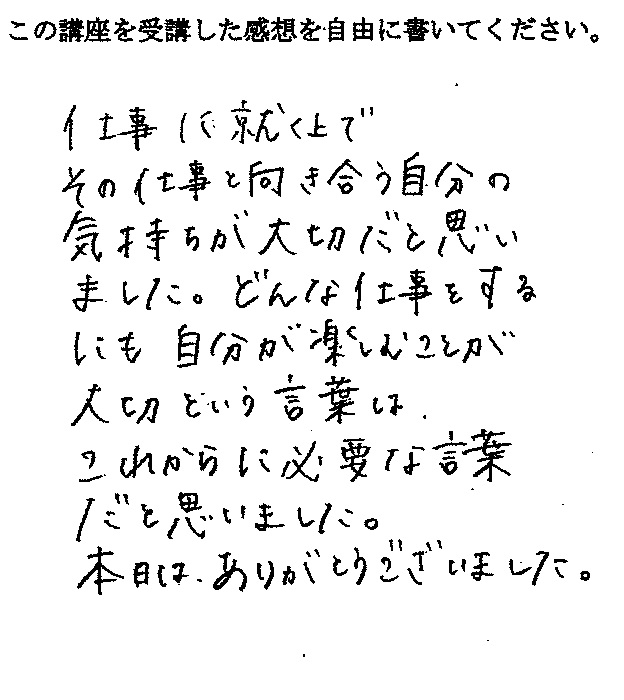 この講座を受講した感想を自由に書いてください。
仕事に就く上で
その仕事と向き合う自分の
気持ちが大切だと思い
ました。どんな仕事をする
にも自分が楽しむことが
大切という言葉は、
これからに必要な言葉
だと思いました。
本日は、ありがとうございました。